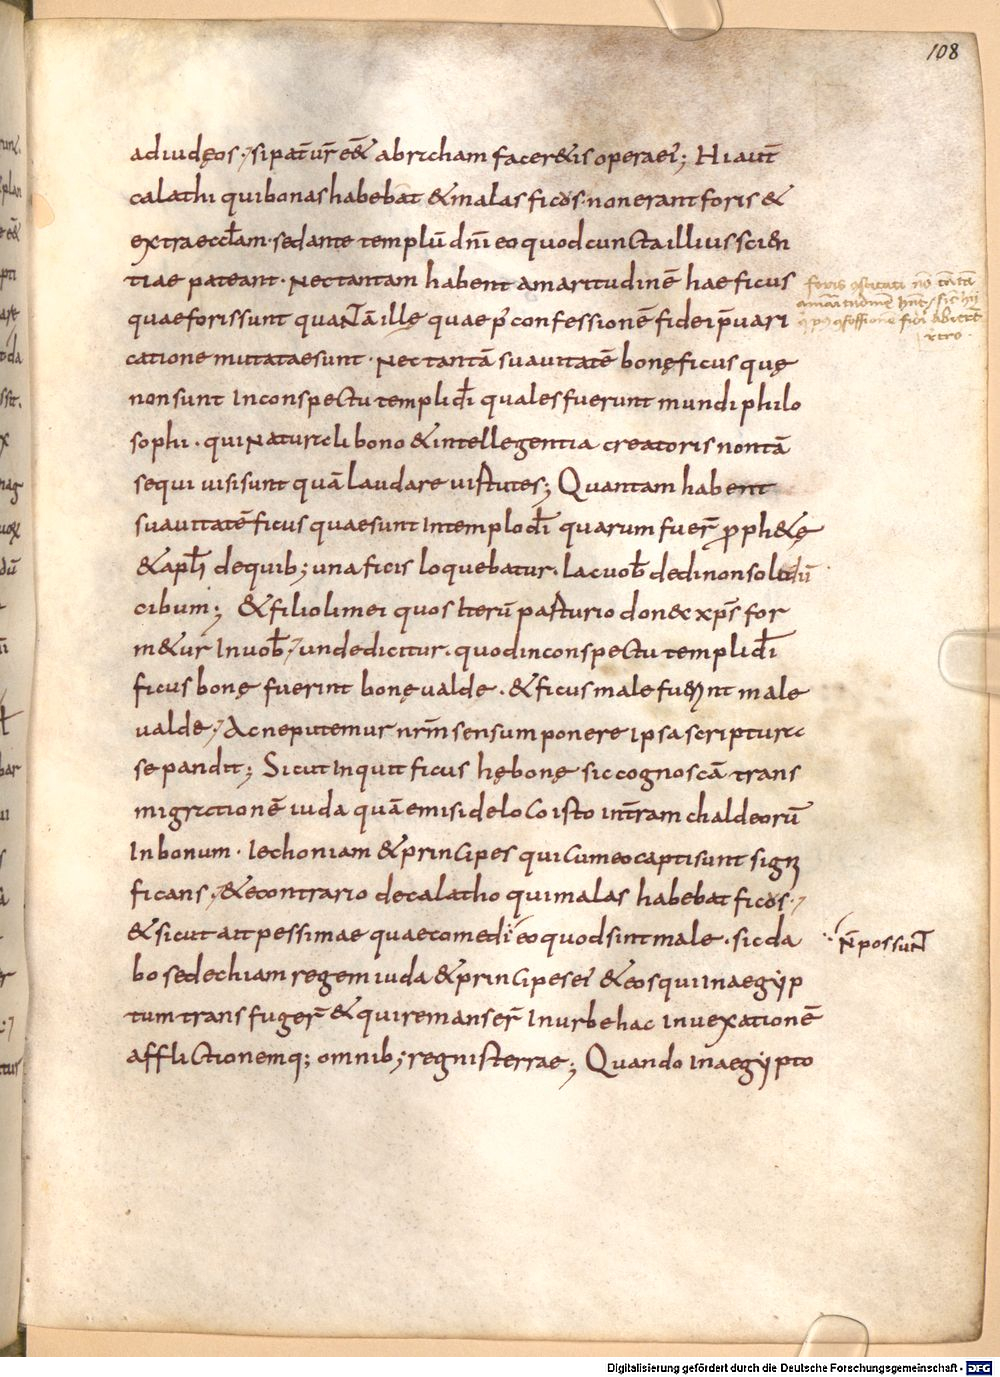 108
ad iudęos; si pat̄ ur̄ eē& abracham facer& is opera ei; Hi aut̄
calathi qui bonas habebat & malas ficos. non erant foris &
extra eccl̄am. sed ante templū dn̄i eo quod cuncta illius scien
tiae pateant. Nec tantam habent amaritudinē hae ficus
quae foris sunt quaNtā illę quae p̄ confessionē fidei p̄uari
catione mutatae sunt. Nec tantā suauitatē bonę ficus quę
non sunt In conspectu templi dī quales fuerunt mundi philo
sophi. qui Naturali bono & intellegentia creatoris non tā
sequi uisi sunt quā laudare uirtutes; Quantam habent
suauitatē ficus quae sunt In templo dī quarum fuer̄ proph&ę
& apl̄i de quib; una ficis loquebatur. lac uob̄ dedi non solidū
cibum; & filioli mei quos Iterū parturio donec xp̄s for
m&ur In uob̄; unde dicitur. quod in conspectu templi dī
ficus bonę fuerint bonę ualde. & ficus male fuerint male
ualde; Ac ne putemur nr̄m sensum ponere ipsa scriptura
se pandit; Sicut Inquit ficus hę bonę sic cognoscā trans
migrationē iuda quā emisi de loco isto in tr̄am chaldeorū
In bonum. Iechoniam & principes qui cum eo capti sunt signi
ficans; & e contrario de calatho qui malas habebat ficos;
& sicut ait pessimae quae comedi eo quod sint male. sic da
bo sedechiam regem iuda & principes ei & eos qui In aegyp
tum transfuger̄ & qui remanser̄ In urbe hac In uexationē
afflictionemq; omnib; regnis terrae; Quando In aegypto
N̄ possuNt
Digitalisierung gefördert durch die Deutsche Forschungsgemeinschaft - DFG